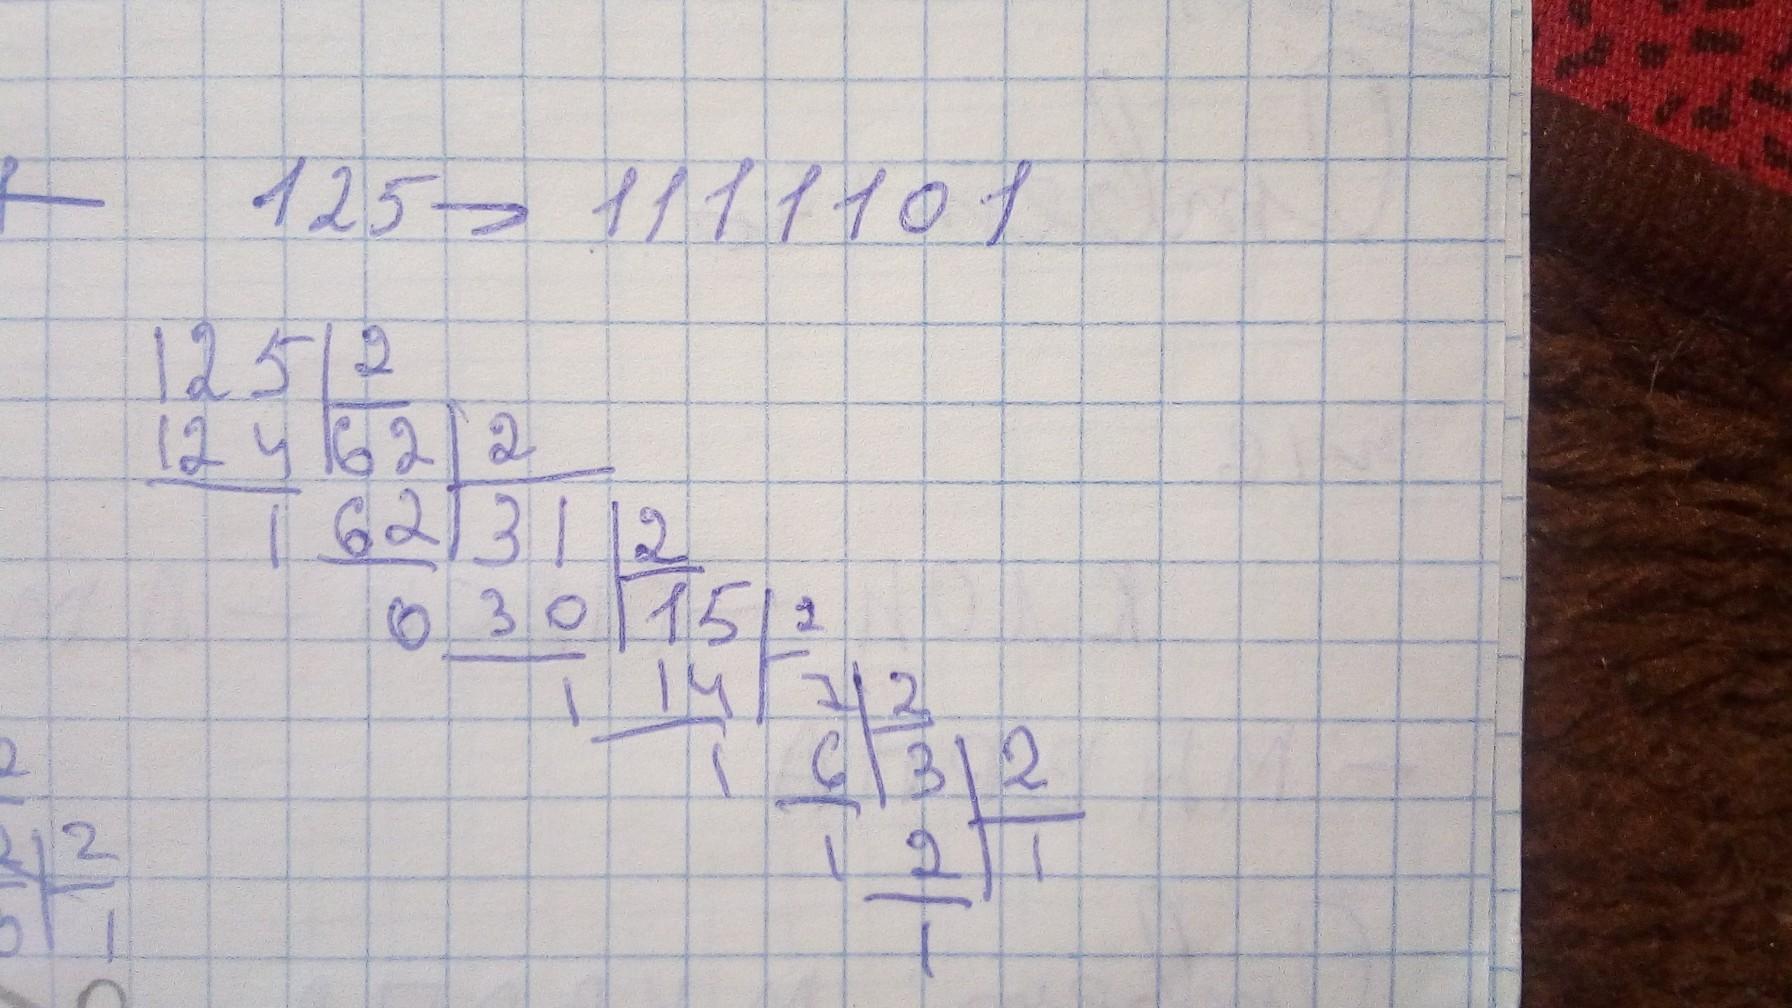 125 → 1111101
125 2
124 62 2
1 62 31 2
0 30 15 2
1 14 7 2
1 6 3 2
1 2 1
1
2
2 2
1